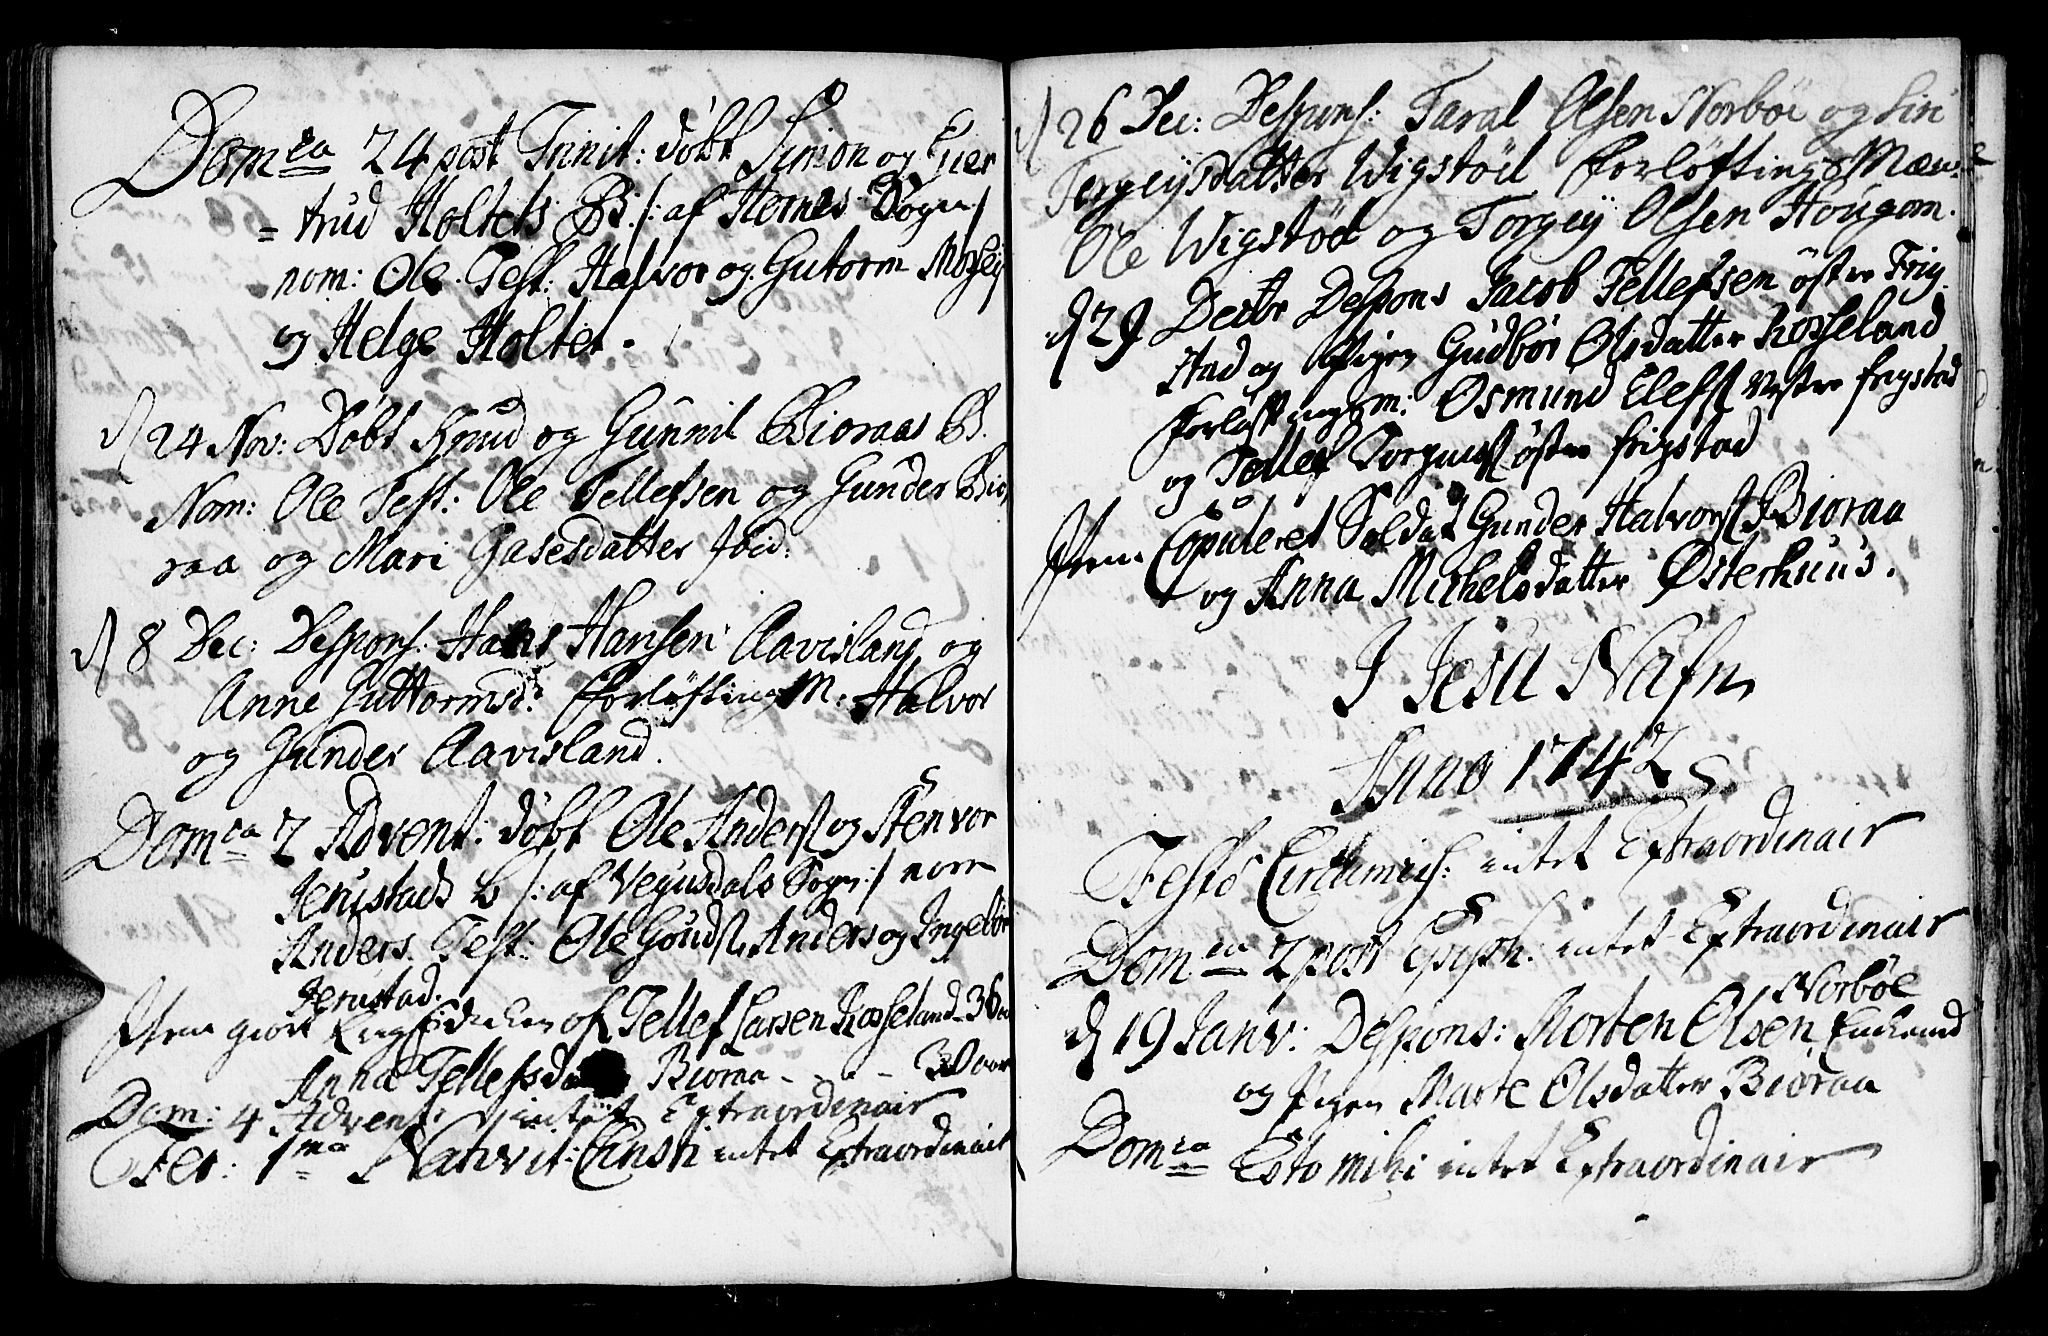 Dom ca 24 post Trinit: døbt Simon og Gier
= trud Holtets B: /: af Hornes Sogn /
nom: Ole. Test: Halvor og Gutorm
og Helge Holtet.
d 24 Nov: Døbt Knud og Gunnil Bioraas B.
Nom: Ole Test: Ole Tellefsen og Gunder Bio,
raa og Mari Gasesdatter Ibid:
d 8 Dec: Despons: Hans Hansen Aavisland og
Anne Guttormsd: Forløftings M: Halvor
og Gunder Aavisland.
Dom ca 2 Advent. døbt Ole Anders: og Stenvor
Jerustads b /: af Vegusdals Sogn :/ nom
Anders. Test: Ole Gouds: Anders og Ingebør
Jerustad.
Item giort af Tellef Larsen Rosseland 36
Anna Tellefsda Bioraa - - - 30 aar
Dom: 4 Advent: intet Extraordinair
Fer: 1ma Nativit: Christi intet Extraordinair
d 26 Dec: Despons: Taral Olsen Norbøe og Siri
Torgeysdatter Wigstøel Forløftings Mæn:
Ole Wigstøel og Torgey Olsen Hougom.
d 29 Decbr Despons Jacob Tellefsen østre Frig
stad og Pigen Gudbør Olsdatter Rosseland
Forløftingsm: Osmund Elefs: Vestre Frigstad
og Tellef Torgius: østre Frigstad
Item Copuleret Soldat Gunder Halvors: Bioraa
og Anna Michelsdatter Østerhuus.
I Jesu Nafn
Anno 1742
Festo Circumcis: intet Extraordinair
Dom ca 2 post Epiph: intet Extraordinair
Norbøe
d 19 Janv: Despons: Morten Olsen Enkemand
og Pigen Marte Olsdatter Bioraa
Dom ca Esto mihi intet Extraordinair